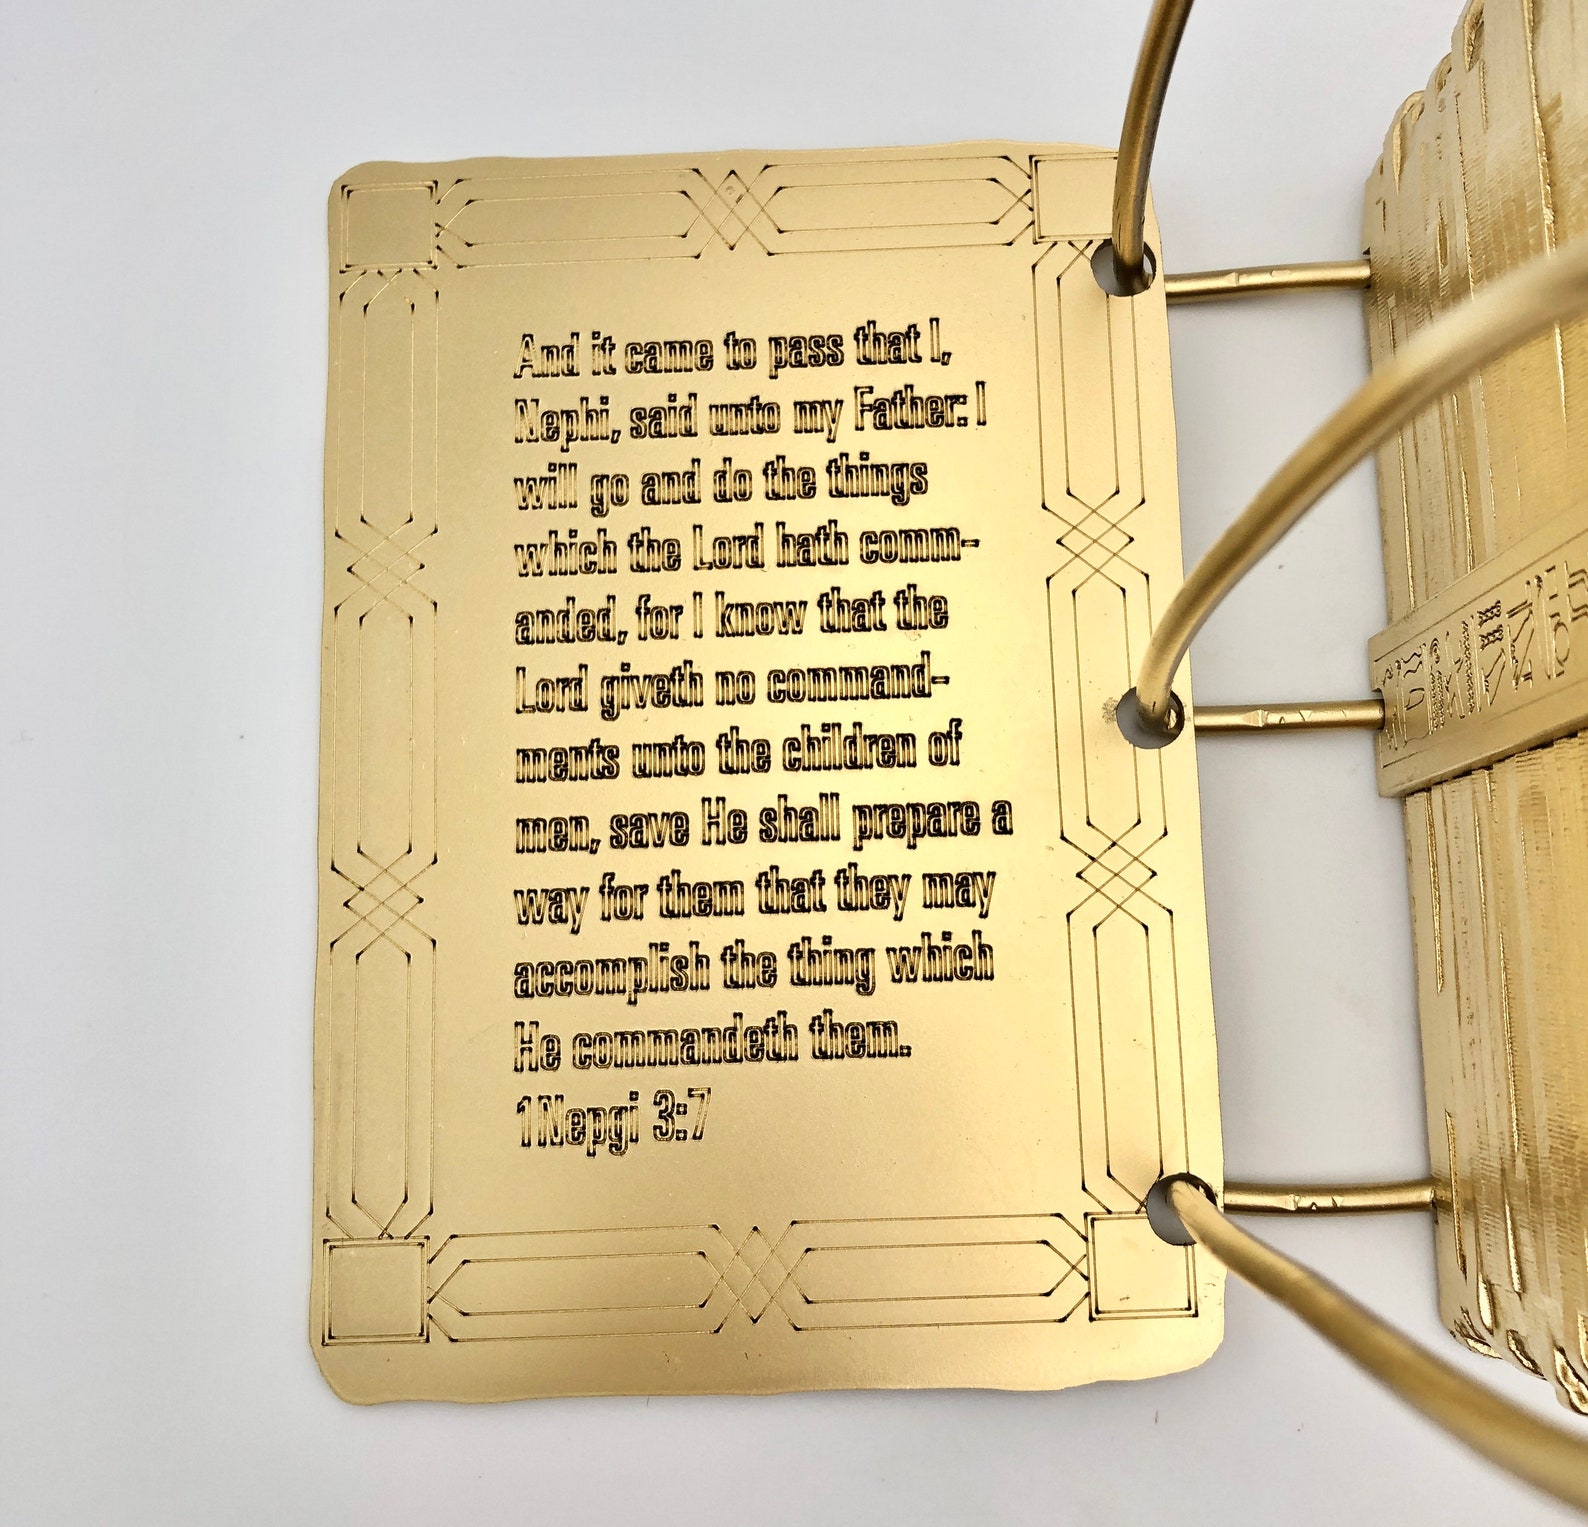 And it came to pass that I,
Nephi, said unto my Father: I
will go and do the things
which the Lord hath comm-
anded, for I know that the
Lord giveth no command-
ments unto the children of
men, save He shall prepare a
way for them that they may
accomplish the thing which
He commandeth them.
1 Nepgi 3:7